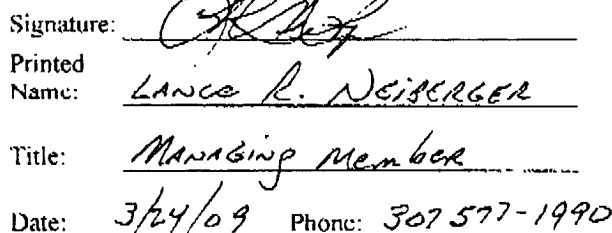 Signature:
Printed
Name: LANCE R. NEIBERGER
Title: MANAGING MEMBER
Date: 3/24/09 Phone: 307 577-1990